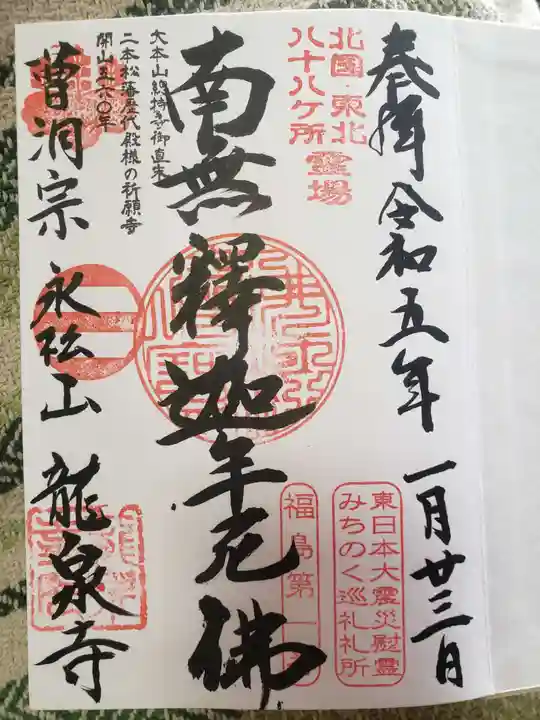 奉拝 令和五年 一月廿三日
北国・東北
八十八ケ所
霊場
東日本大震災慰霊
みちのく巡礼札所
福島第一
南無釋迦牟尼佛
大本山總持寺御直末
二本松藩歴代殿様の祈願寺
開山
曹洞宗 永松山 龍泉寺